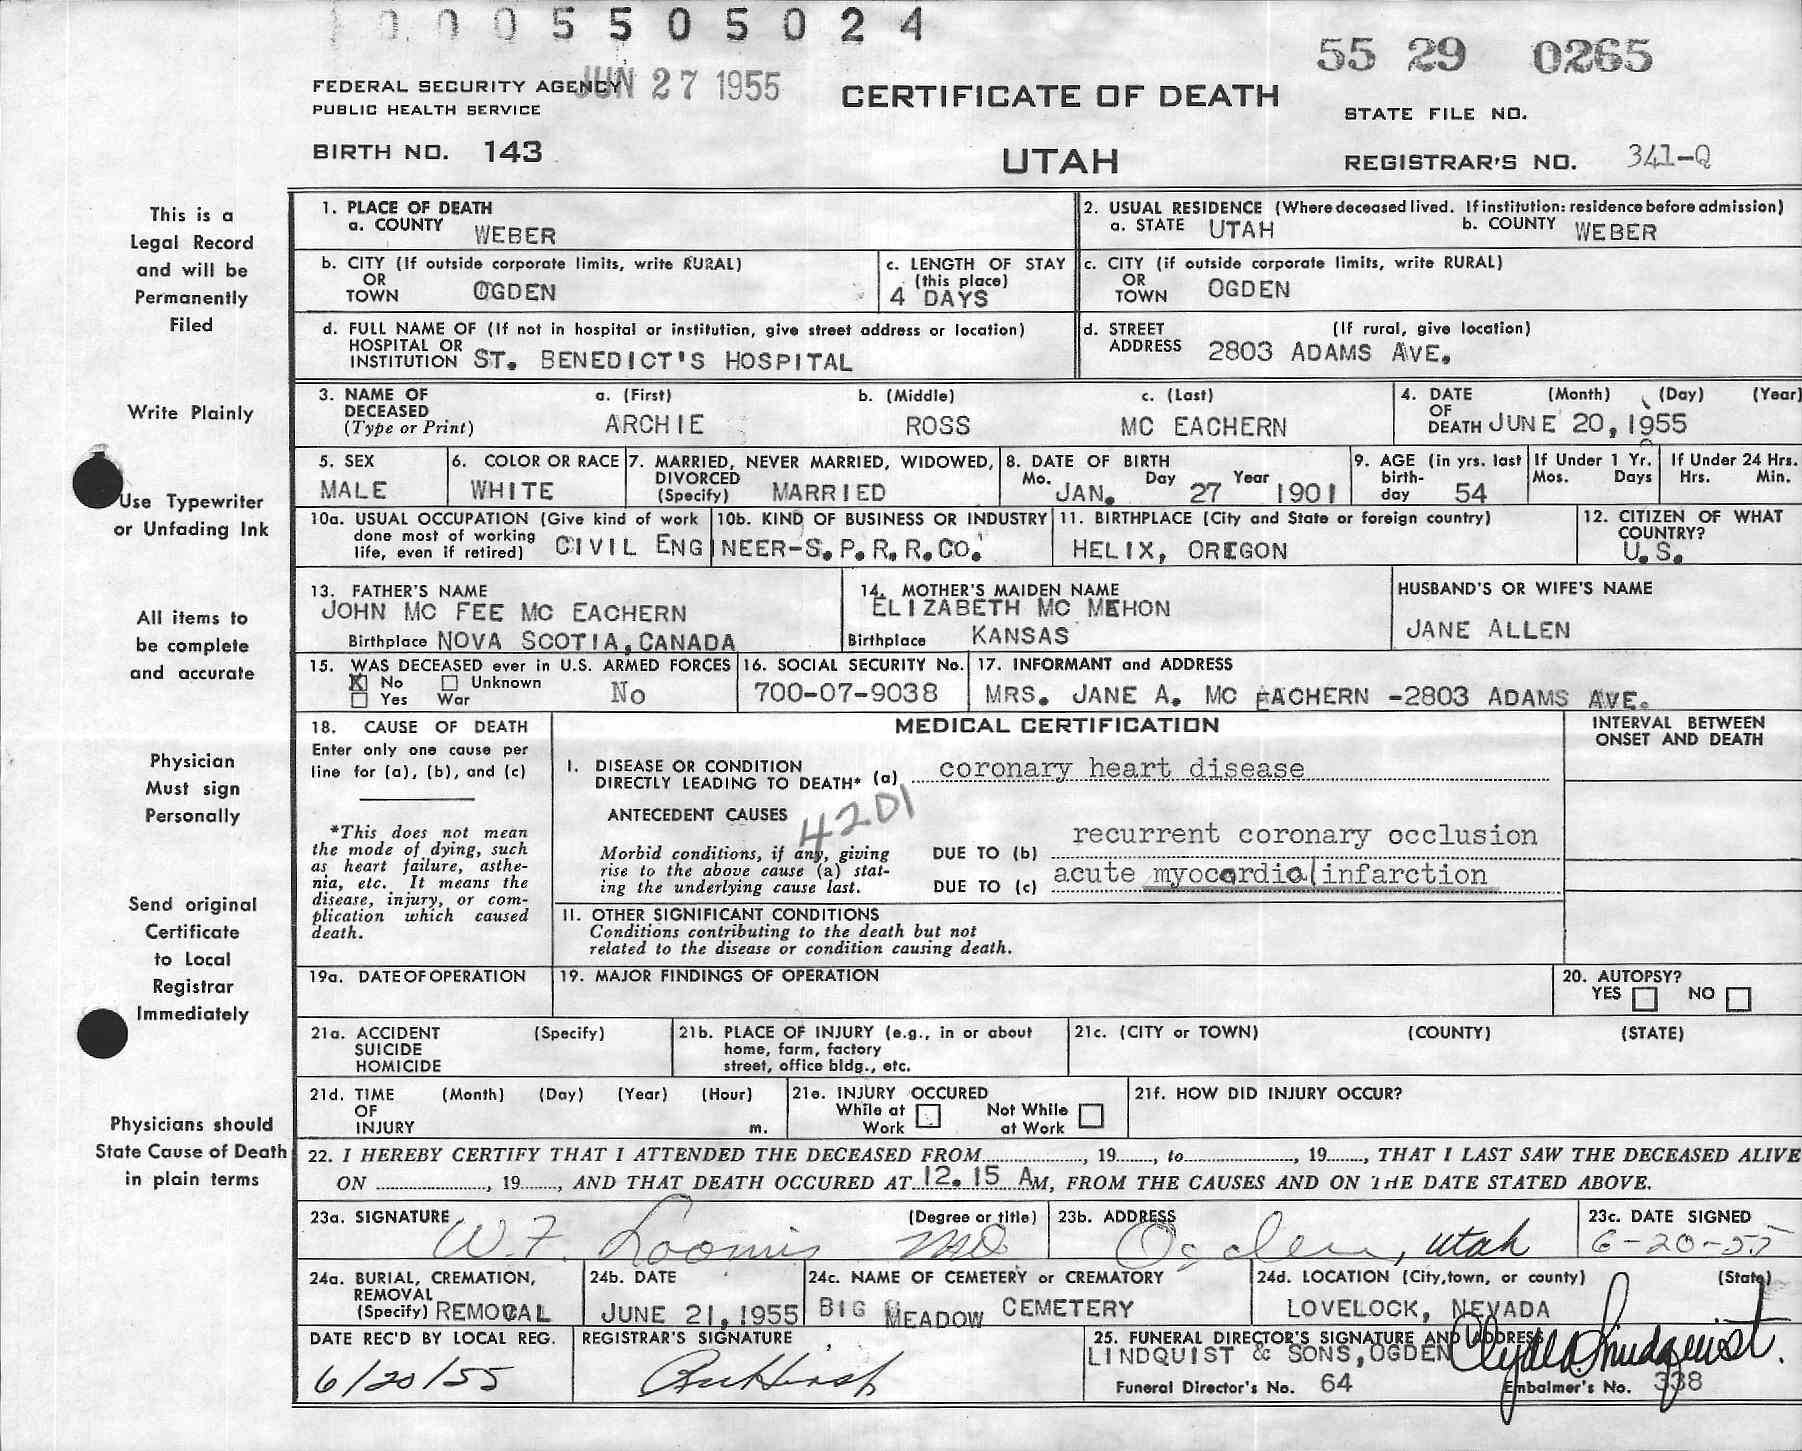 1 0 0 0 5 5 0 5 0 2 4
55 29 0265
FEDERAL SECURITY AGENCY JUN 27 1955
PUBLIC HEALTH SERVICE
CERTIFICATE OF DEATH
STATE FILE NO.
BIRTH NO. 143
UTAH
REGISTRAR'S NO. 341-Q
This is a
Legal Record
and will be
Permanently
Filed
Write Plainly
Use Typewriter
or Unfading Ink
All items to
be complete
and accurate
Physician
Must sign
Personally
Send original
Certificate
to Local
Registrar
Immediately
Physicians should
State Cause of Death
in plain terms
1. PLACE OF DEATH
a. COUNTY WEBER
2. USUAL RESIDENCE (Where deceased lived. If institution: residence before admission)
a. STATE UTAH b. COUNTY WEBER
b. CITY (If outside corporate limits, write RURAL)
OR
TOWN OGDEN
c. LENGTH OF STAY
(this place)
4 DAYS
c. CITY (if outside corporate limits, write RURAL)
OR
TOWN OGDEN
d. FULL NAME OF (If not in hospital or institution, give street address or location)
HOSPITAL OR
INSTITUTION ST. BENEDICT'S HOSPITAL
d. STREET (If rural, give location)
ADDRESS 2803 ADAMS AVE.
3. NAME OF a. (First) b. (Middle) c. (Last)
DECEASED
(Type or Print) ARCHIE ROSS MC EACHERN
4. DATE (Month) (Day) (Year)
OF
DEATH JUNE 20, 1955
5. SEX
MALE
6. COLOR OR RACE
WHITE
7. MARRIED, NEVER MARRIED, WIDOWED,
DIVORCED
(Specify) MARRIED
8. DATE OF BIRTH
Mo. JAN. Day 27 Year 1901
9. AGE (in yrs. last
birth-
day 54
If Under 1 Yr.
Mos. Days
If Under 24 Hrs.
Hrs. Min.
10a. USUAL OCCUPATION (Give kind of work
done most of working
life, even if retired) CIVIL ENG
10b. KIND OF BUSINESS OR INDUSTRY
NEER-S. P. R. R. CO.
11. BIRTHPLACE (City and State or foreign country)
HELIX, OREGON
12. CITIZEN OF WHAT
COUNTRY?
U.S.
13. FATHER'S NAME
JOHN MC FEE MC EACHERN
Birthplace NOVA SCOTIA, CANADA
14. MOTHER'S MAIDEN NAME
ELIZABETH MC MEHON
Birthplace KANSAS
HUSBAND'S OR WIFE'S NAME
JANE ALLEN
15. WAS DECEASED ever in U.S. ARMED FORCES
X No Unknown No
Yes War
16. SOCIAL SECURITY No.
700-07-9038
17. INFORMANT and ADDRESS
MRS. JANE A. MC EACHERN -2803 ADAMS AVE.
18. CAUSE OF DEATH
Enter only one cause per
line for (a), (b), and (c)
*This does not mean
the mode of dying, such
as heart failure, asthe-
nia, etc. It means the
disease, injury, or com-
plication which caused
death.
MEDICAL CERTIFICATION
INTERVAL BETWEEN
ONSET AND DEATH
I. DISEASE OR CONDITION
DIRECTLY LEADING TO DEATH* (a) coronary heart disease
ANTECEDENT CAUSES 4201
Morbid conditions, if any, giving
rise to the above cause (a) stat-
ing the underlying cause last.
DUE TO (b) recurrent coronary occlusion
DUE TO (c) acute myocardial infarction
II. OTHER SIGNIFICANT CONDITIONS
Conditions contributing to the death but not
related to the disease or condition causing death.
19a. DATE OF OPERATION
19. MAJOR FINDINGS OF OPERATION
20. AUTOPSY?
YES NO
21a. ACCIDENT (Specify)
SUICIDE
HOMICIDE
21b. PLACE OF INJURY (e.g., in or about
home, farm, factory
street, office bldg., etc.
21c. (CITY or TOWN) (COUNTY) (STATE)
21d. TIME (Month) (Day) (Year) (Hour)
OF
INJURY m.
21e. INJURY OCCURED
While at Work Not While at Work
21f. HOW DID INJURY OCCUR?
22. I HEREBY CERTIFY THAT I ATTENDED THE DECEASED FROM........, 19......, to........, 19......, THAT I LAST SAW THE DECEASED ALIVE
ON ........, 19......, AND THAT DEATH OCCURED AT 12.15 A M, FROM THE CAUSES AND ON THE DATE STATED ABOVE.
23a. SIGNATURE (Degree or title)
W. F. Loomis MD
23b. ADDRESS
Ogden, Utah
23c. DATE SIGNED
6-20-55
24a. BURIAL, CREMATION,
REMOVAL
(Specify) REMOVAL
24b. DATE
JUNE 21, 1955
24c. NAME OF CEMETERY or CREMATORY
BIG MEADOW CEMETERY
24d. LOCATION (City, town, or county) (State)
LOVELOCK, NEVADA
DATE REC'D BY LOCAL REG.
6/20/55
REGISTRAR'S SIGNATURE
25. FUNERAL DIRECTOR'S SIGNATURE AND ADDRESS
LINDQUIST & SONS, OGDEN Clyde A. Lindquist.
Funeral Director's No. 64 Embalmer's No. 338